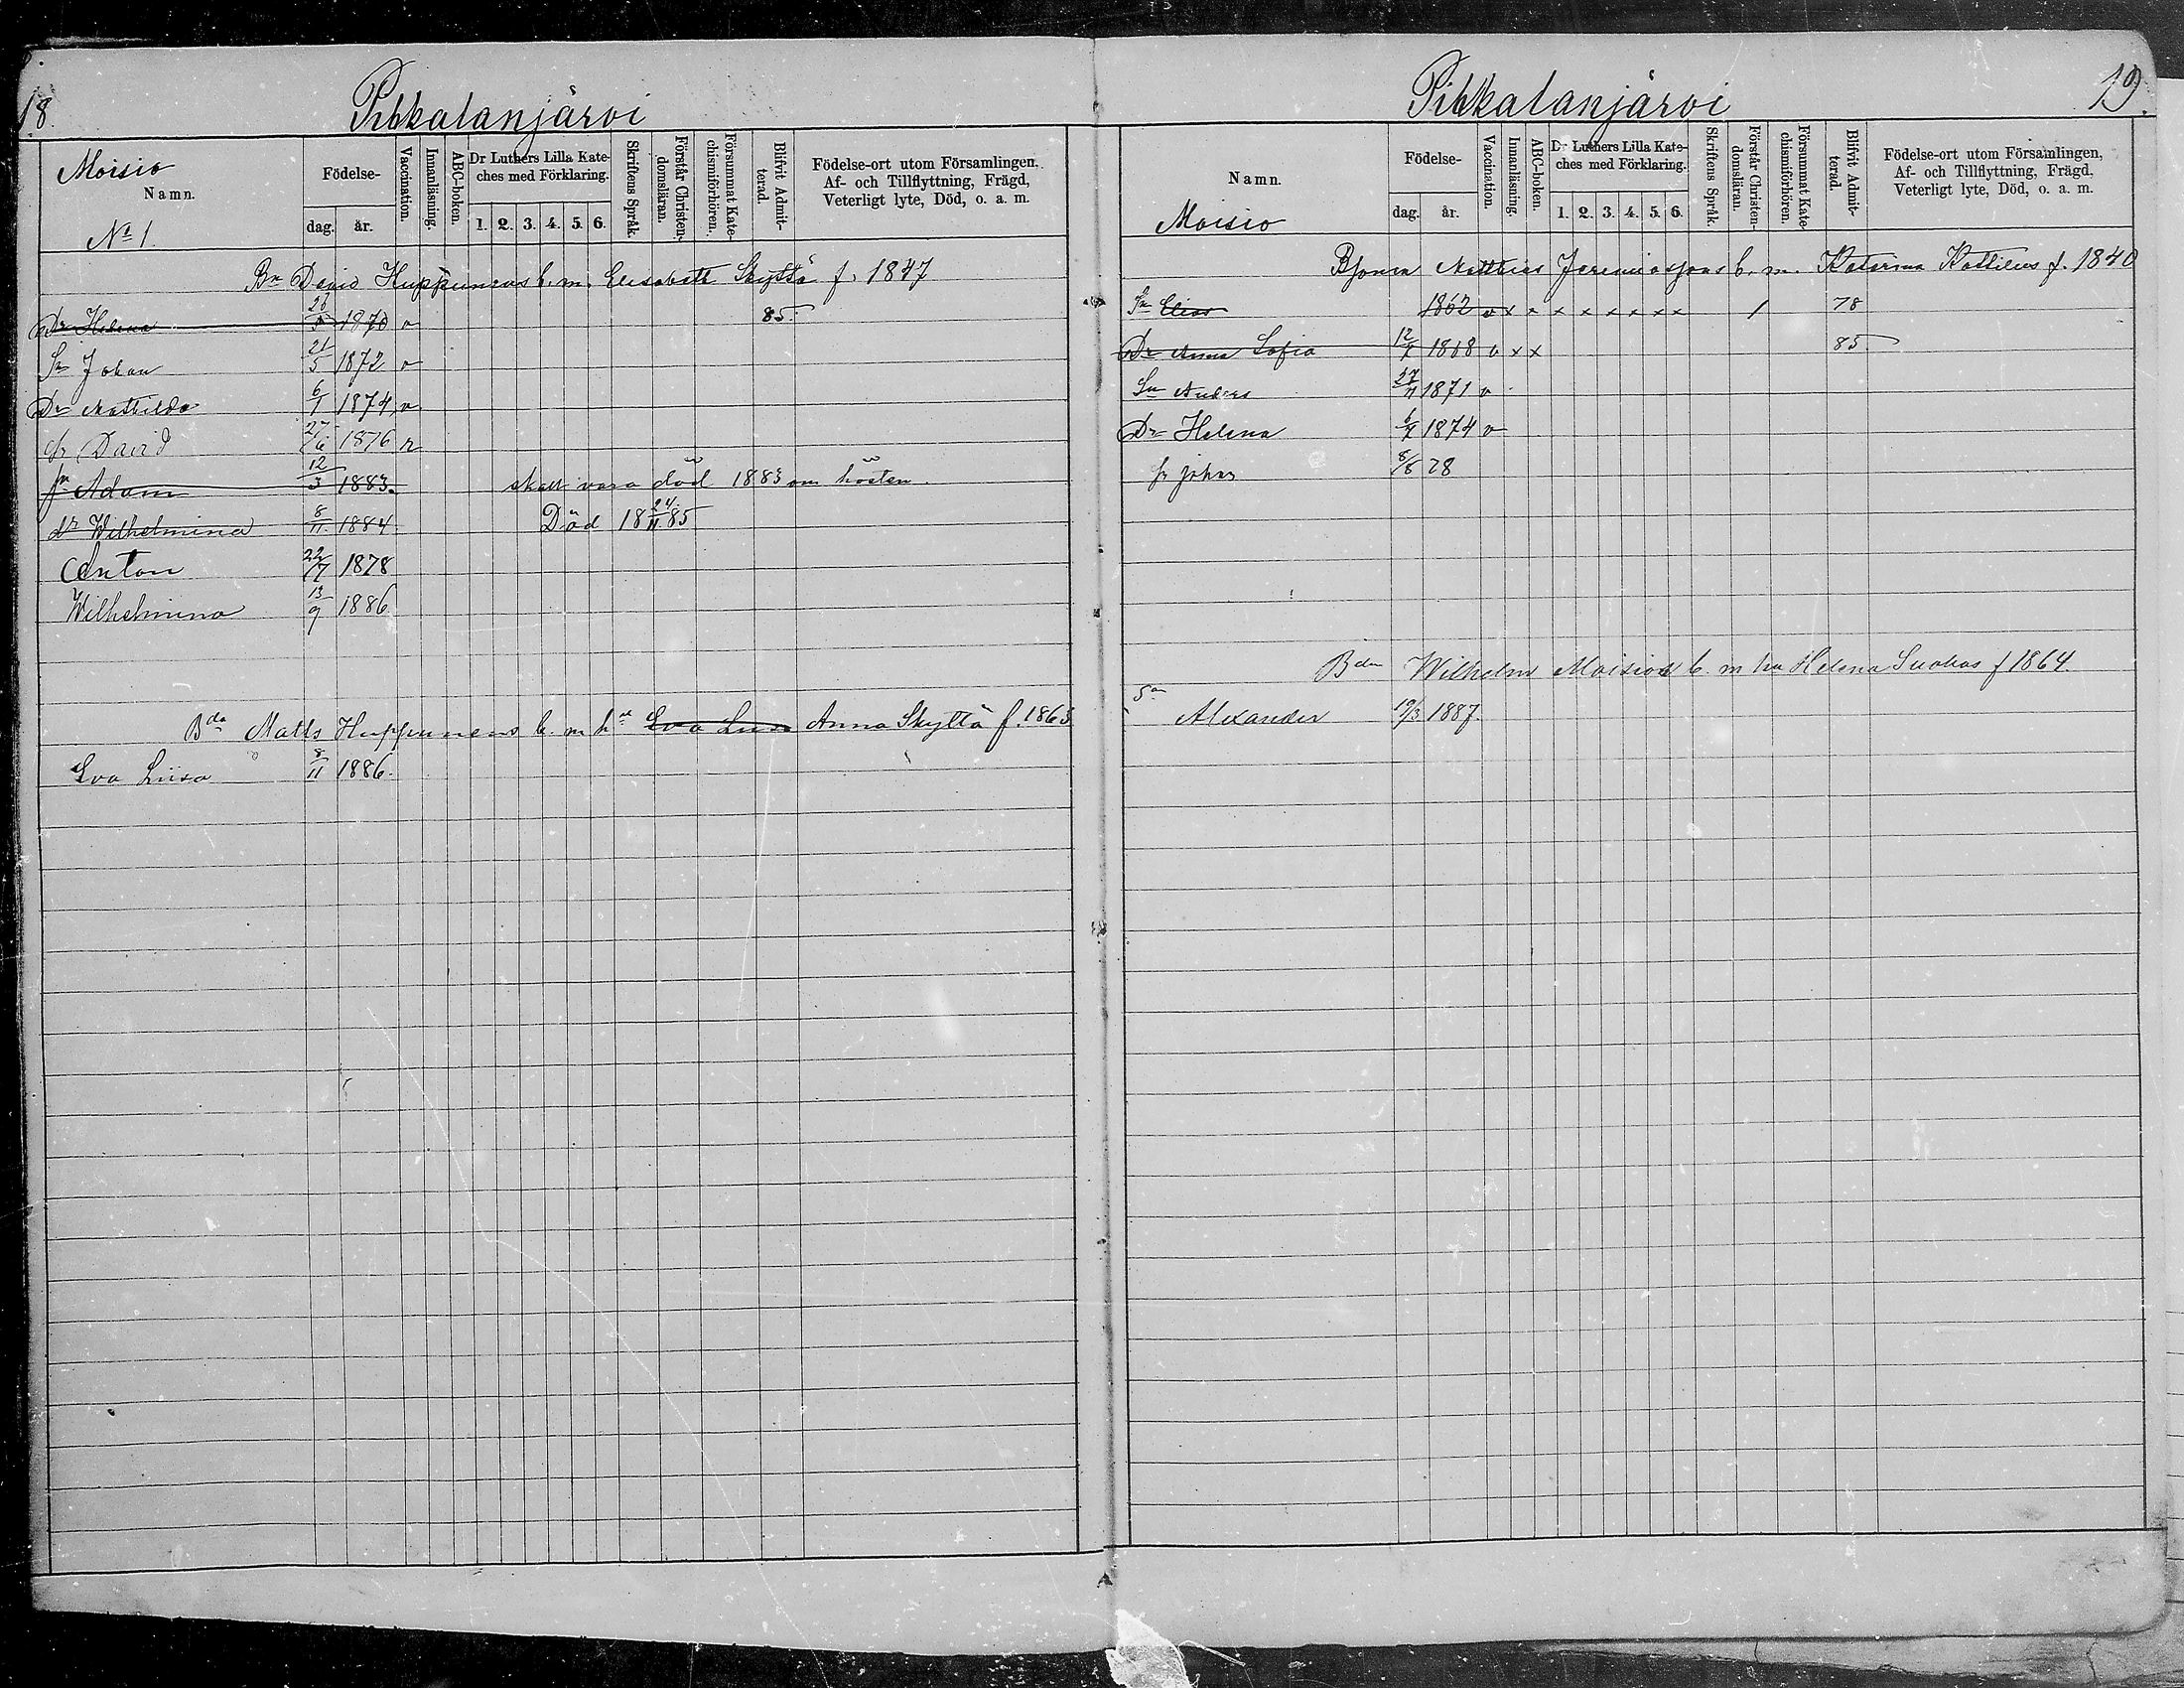 18.
Pihkalanjärvi
Moisio
Namn.
No 1.
Födelse-
dag. år.
Vaccination.
Innanläsning.
ABC-boken.
Dr Luthers Lilla Kate-
ches med Förklaring.
1. 2. 3. 4. 5. 6.
Skriftens Språk.
Förstår Christen-
domsläran.
Försummat Kate-
chismiförhören.
Blifvit Admit-
terad.
Födelse-ort utom Församlingen,
Af- och Tillflyttning, Frägd,
Veterligt lyte, Död, o. a. m.
Bn David Huppunens b. m. Elisabeth Skyttä f. 1847
Dr Helena 1870 v 85.
Sn Johan 21/5 1872 v
Dr Mathilda 6/1 1874 v
Sn David 27/6 1876 v
Sn Adam 12/3 1883. skall vara död 1883 om hösten.
dr Wilhelmina 8/11 1884. Död 18 24/11 85
Anton 22/7 1878
Wilhelmina 13/9 1886
Bdn Matts Huppunens b. m. hu Eva Liisa Anna Skyttä f. 1863
Eva Liisa 8/11 1886.
19.
Pihkalanjärvi
Namn.
Moisio
Födelse-
dag. år.
Vaccination.
Innanläsning.
ABC-boken.
Dr Luthers Lilla Kate-
ches med Förklaring.
1. 2. 3. 4. 5. 6.
Skriftens Språk.
Förstår Christen-
domsläran.
Försummat Kate-
chismiförhören.
Blifvit Admit-
terad.
Födelse-ort utom Församlingen,
Af- och Tillflyttning, Frägd,
Veterligt lyte, Död, o. a. m.
Matthias Jeremiassons b. m. Katarina f. 1840
Sn Elias 1862 v x x x x x x x x x / 78
Dr Anna Sofia 12/7 1868 v x x 85
Sn Anders 27/11 1871 v
Dr Helena 1874 v
Sn johan 8/8 78
Bdn Wilhelm Moision b. m hu Helena Suokas f 1864.
Sn
Alexander 19/3 1887.